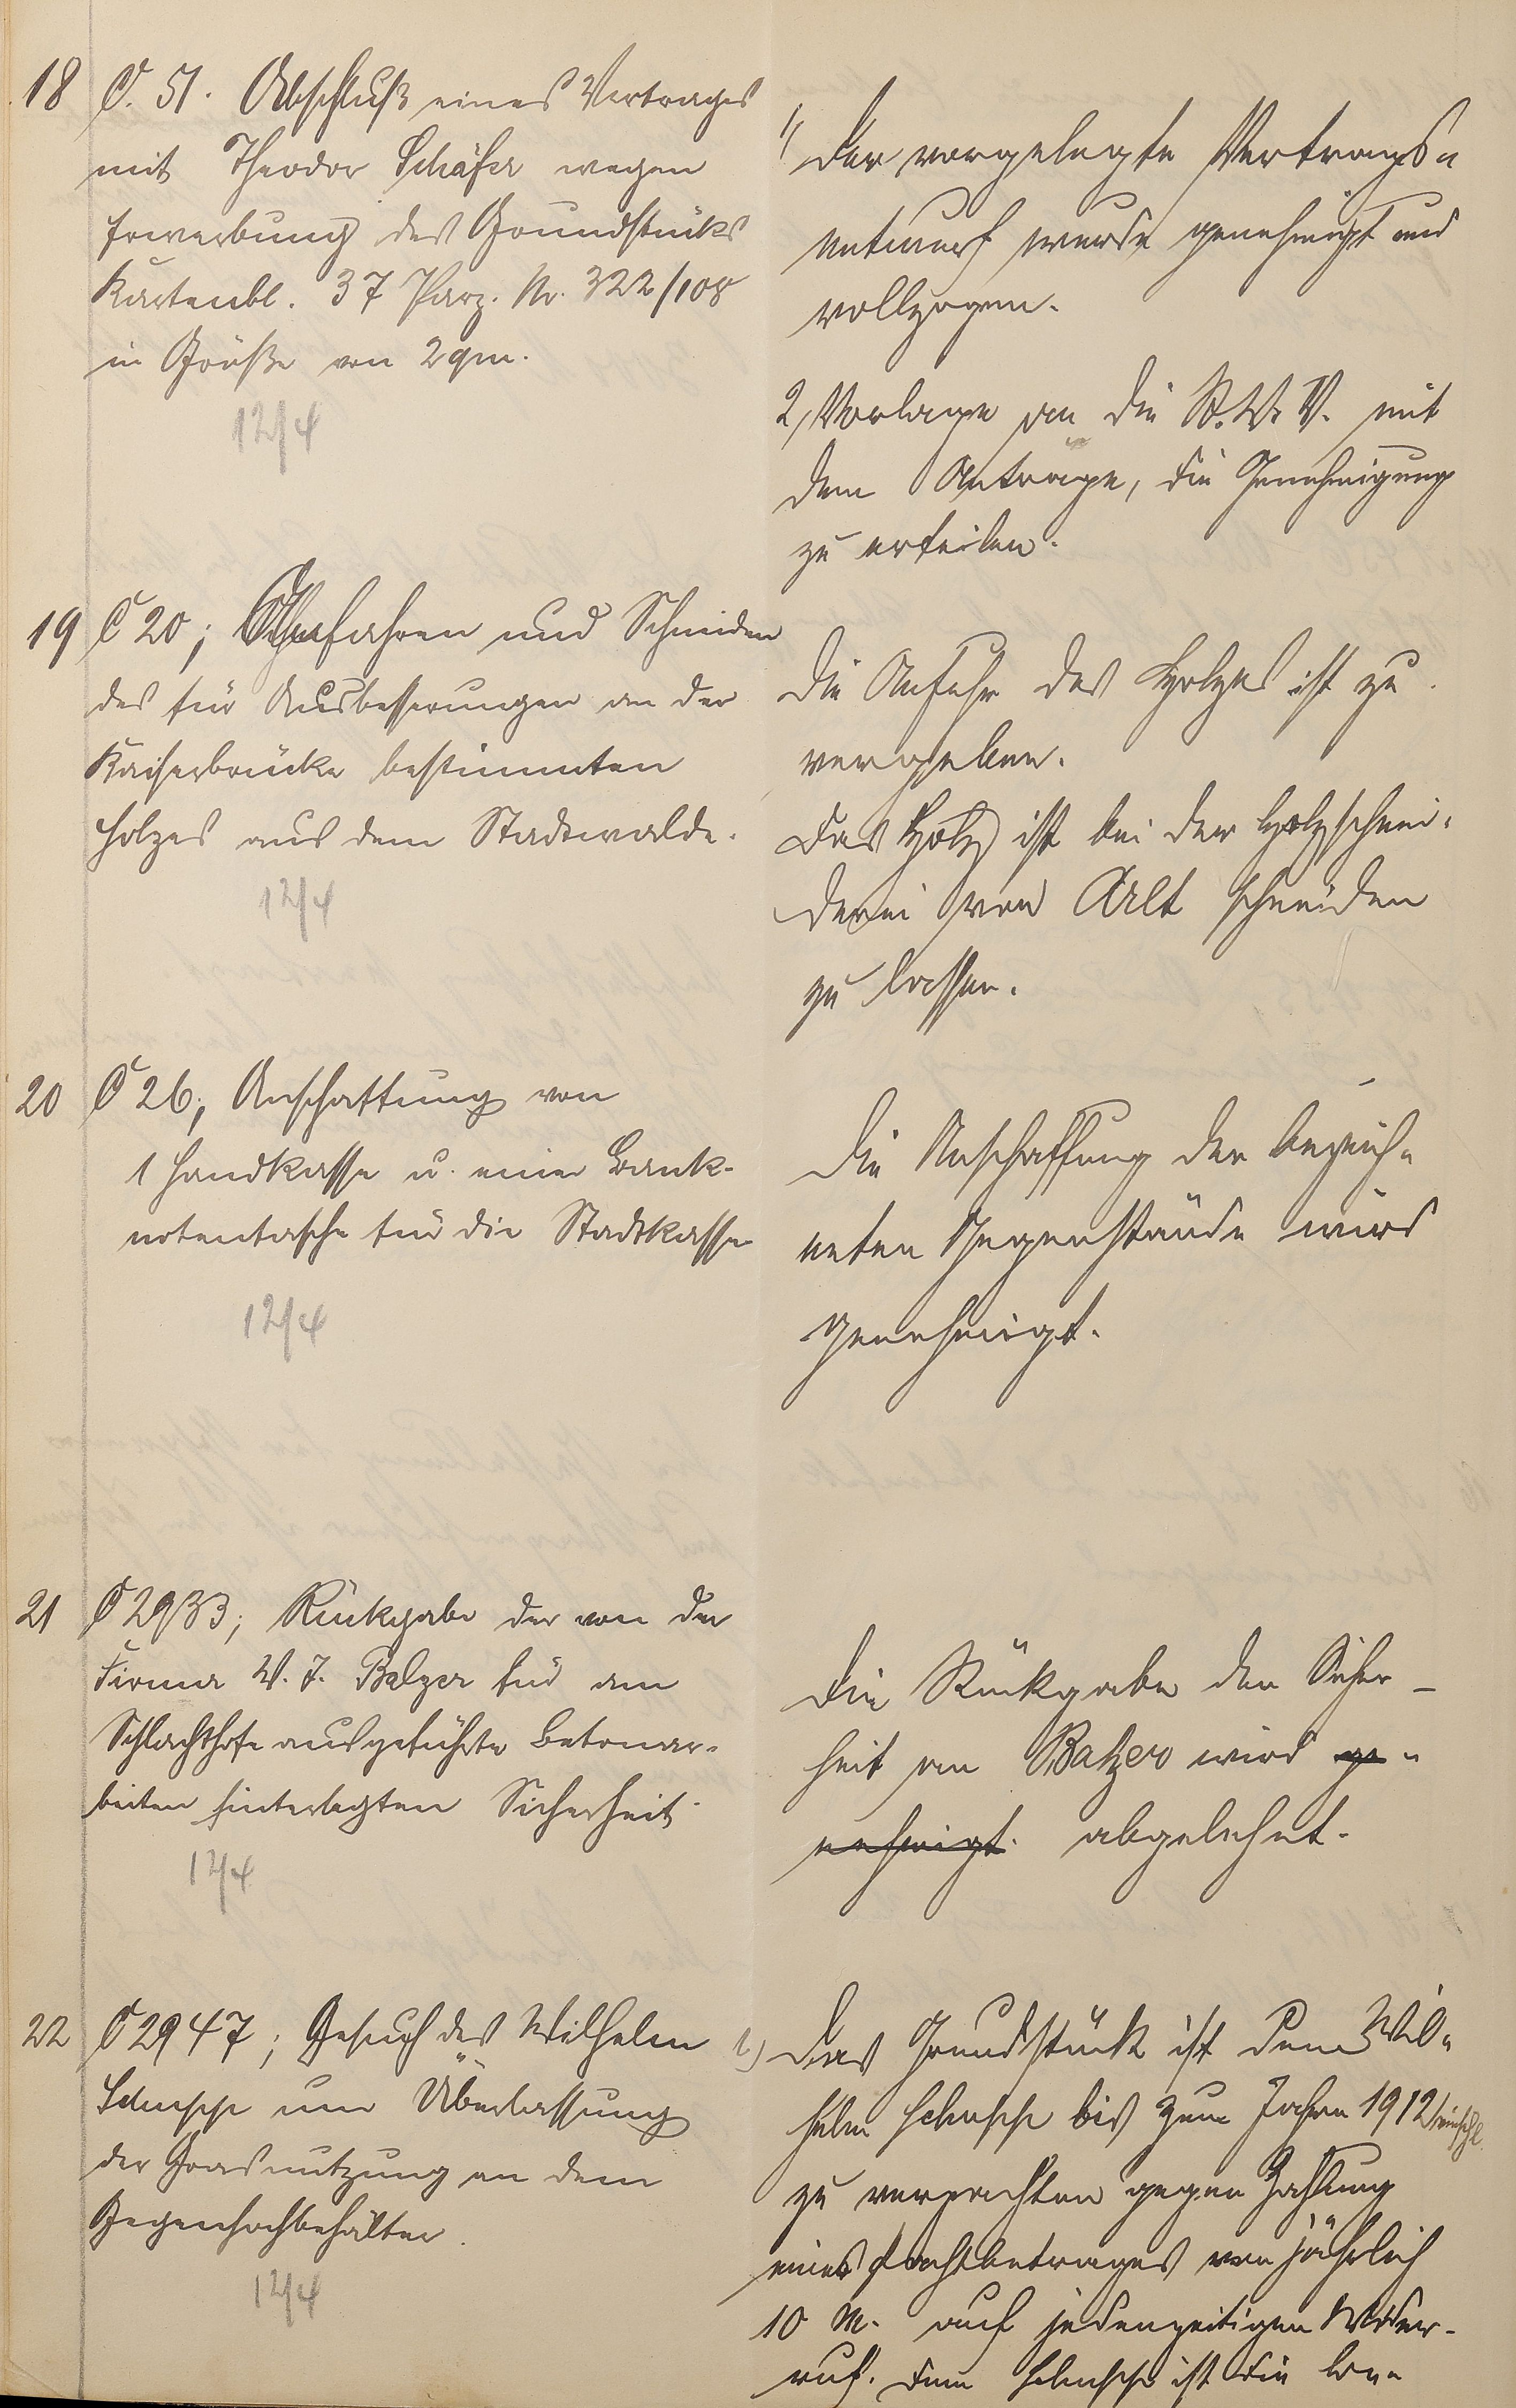 18 C. 51. Abschluß eines Vertrages
mit Theodor Schäfer wegen
Erwerbung des Grundstücks
Kartenbl. 37 Parz. Nr. 322/108
in Größe von 2 qm.
12/4
1) Der vorgelegte Vertrags-
entwurf wurde genehmigt und
vollzogen.
2) Vorlage an die St. V. V. mit
dem Antrage, die Genehmigung
zu erteilen.
19 C 20; Anfahren und Schneiden
des für Ausbesserungen an der
Kaiserbrücke bestimmten
Holzes aus dem Stadtwalde.
12/4
Die Anfuhr des Holzes ist zu
vergeben.
Das Holz ist bei der Holzschnei-
derei von Alt schneiden
zu lassen.
20 C 26; Anschaffung von
1 Handkasse u. einer Bank-
notentasche für die Stadtkasse
12/4
Die Anschaffung der bezeich-
neten Gegenstände wird
genehmigt.
21 C 2933; Rückgabe der von der
Firma W. J. Balzer für am
Schlachthofe ausgeführte Betonar-
beiten hinterlegten Sicherheit.
12/4
Die Rückgabe der Sicher-
heit an Balzer wird ge-
nehmigt. abgelehnt.
22 C 2947; Gesuch des Wilhelm
Schupp um Überlassung
der Grasnutzung an dem
Gegenhochbehälter.
12/4
1) Das Grundstück ist dem Wil-
helm Schupp bis zum Jahre 1912 einschl.
zu verpachten gegen Zahlung
eines Pachtbetrages von jährlich
10 M. auf jederzeitigen Wider-
ruf. Dem Schupp ist die